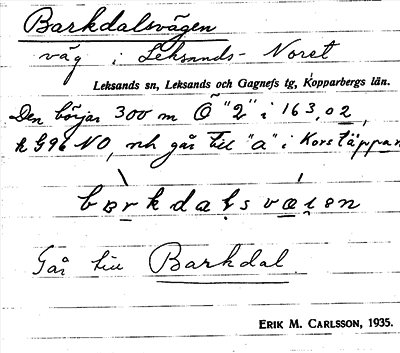 Barkdalsvägen
väg i Leksands-Noret
Leksands sn, Leksands och Gagnefs tg, Kopparbergs län.
Den börjar 300 m Ö "2" i 163,02,
k G96 NO, och går till "a" i Korstäppan
Går till Barkdal
ERIK M. CARLSSON, 1935.